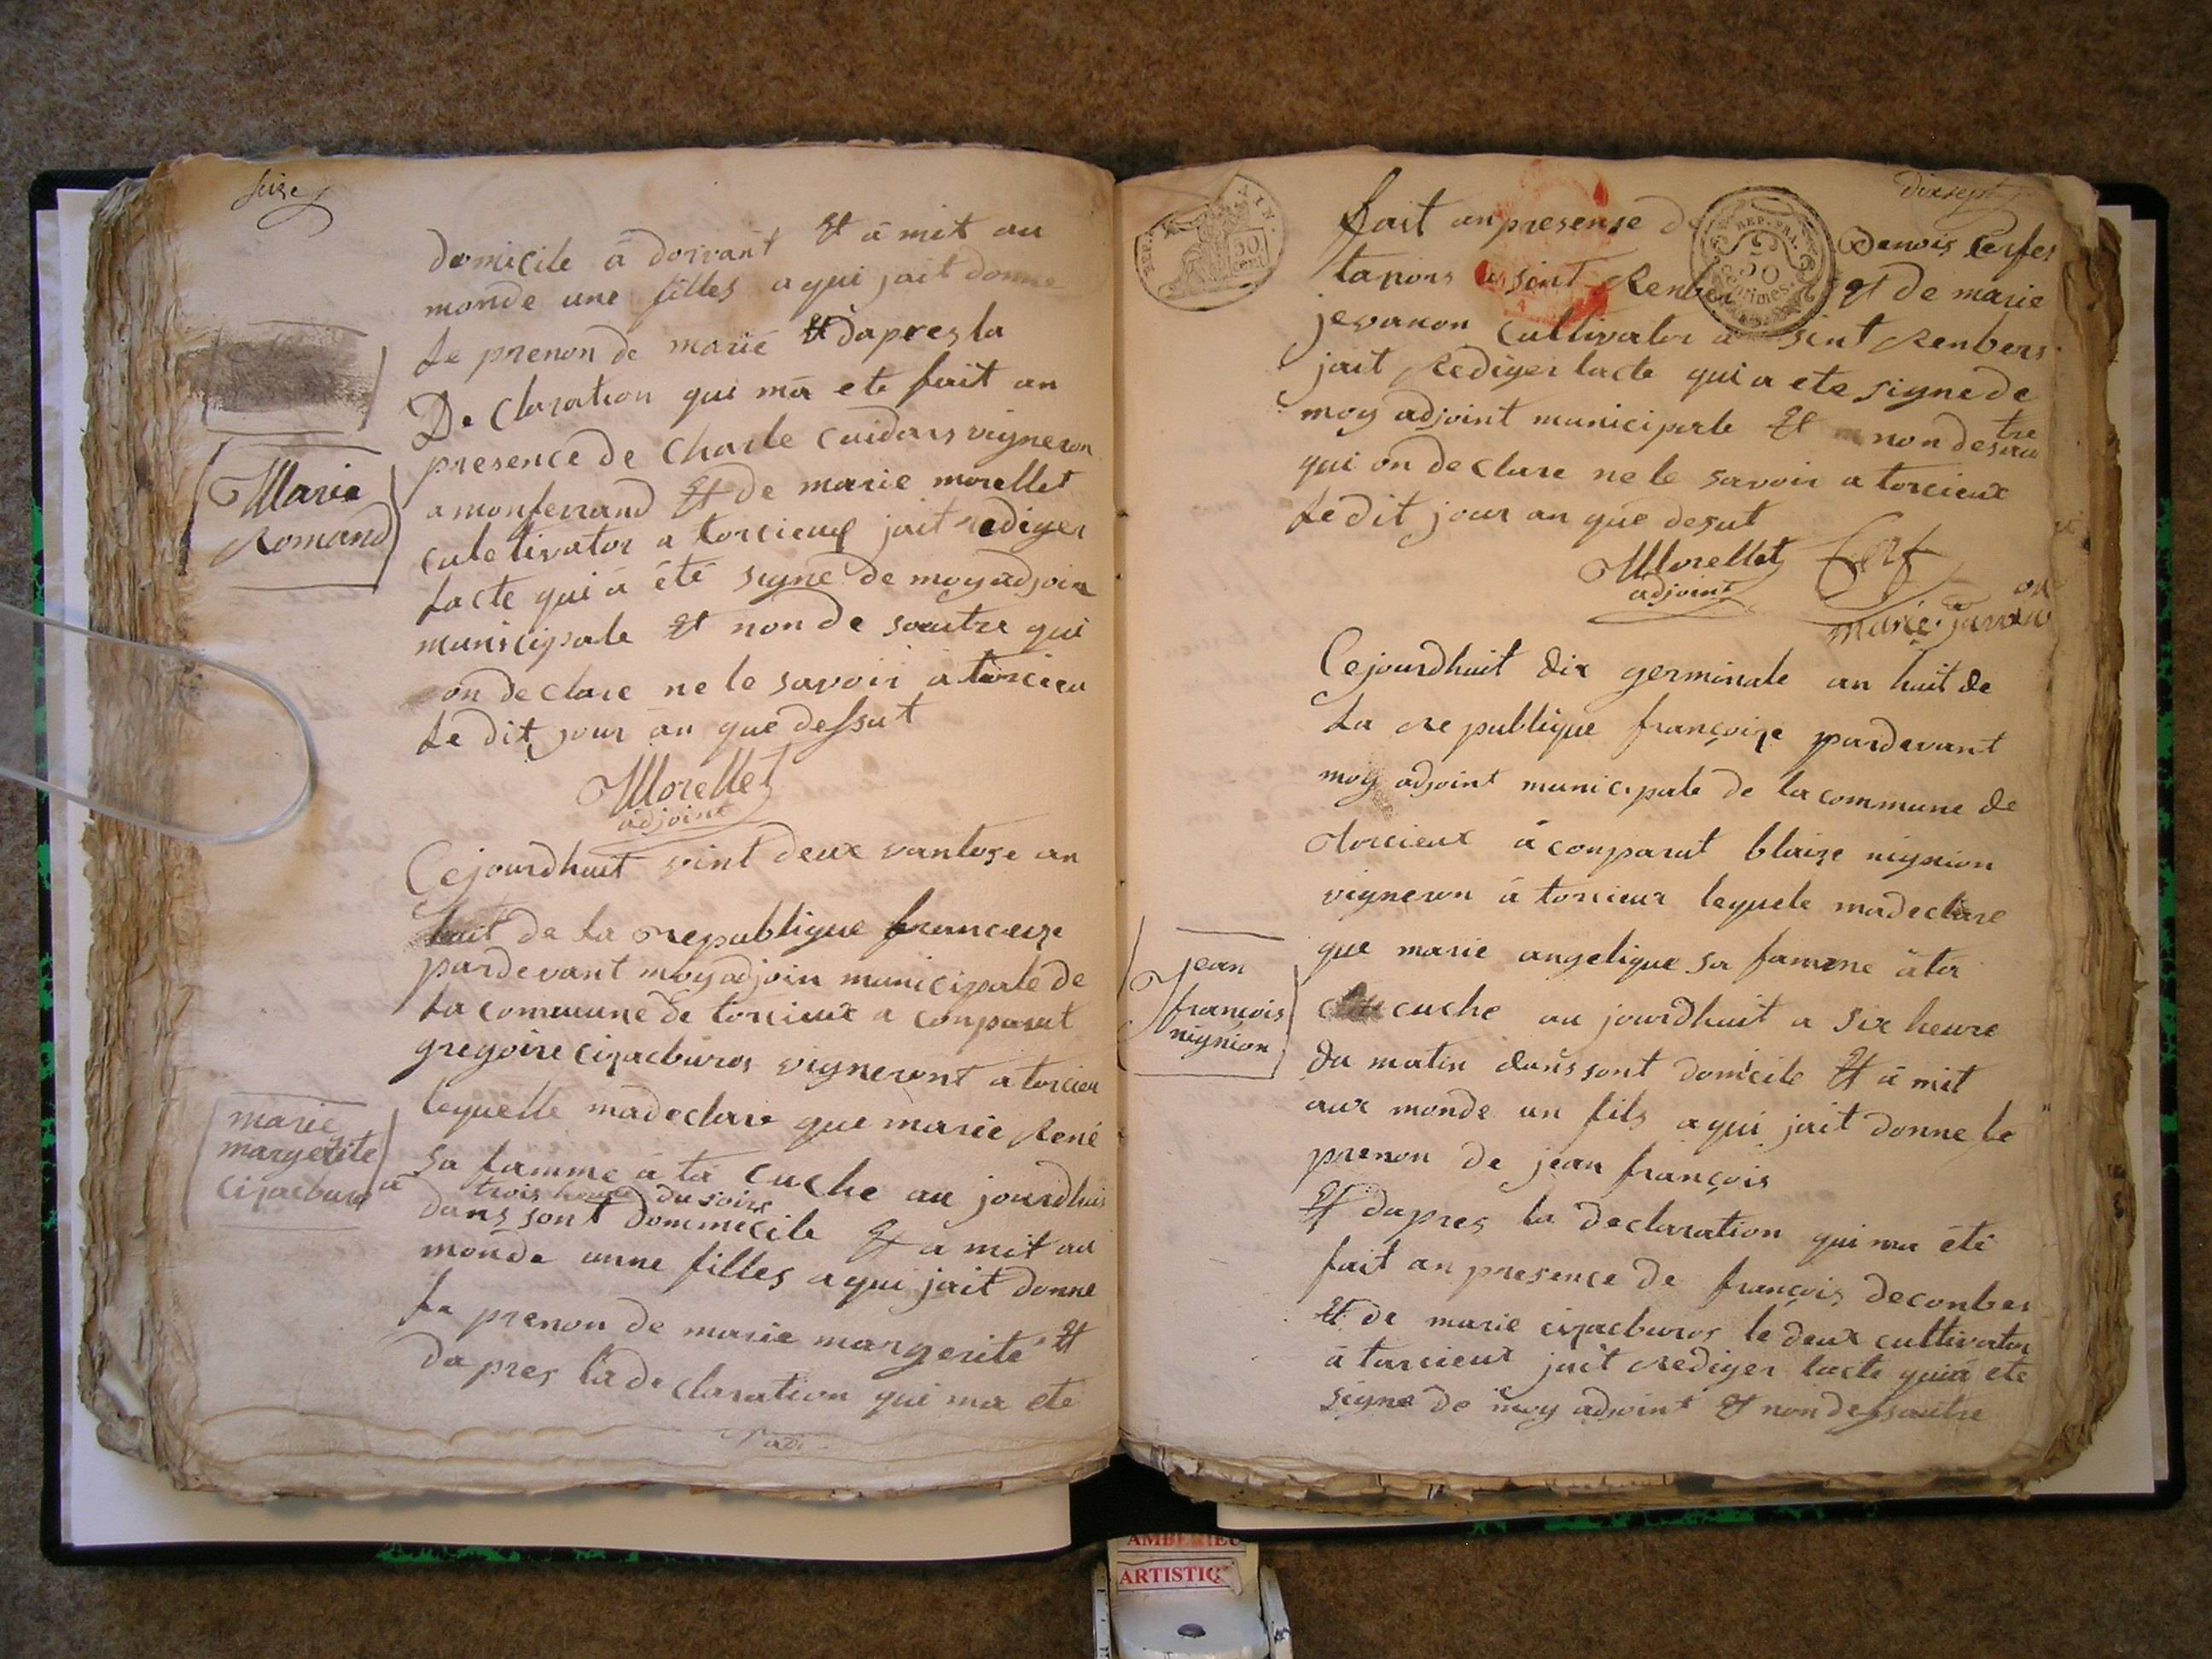 seize
domicile a dorvant Et a mit au
monde une filles a qui jait donne
Le prenon de marie Et dapres la
De claration qui ma ete fait an
presence de Charle cuidars vigneron
a monferrand Et de marie morellet
culetivator a torcieux jait rediger
Lacte qui a été signe de moy adjoin
municipale Et non de sautre qui
on declare ne le savoir a torcieu
Le dit jour an que dessut
Morellet
adjoint
Marie
Romand
Cejourdhuit vint deux vantose an
huit de La republique franceize
pardevant moy adjoin municipale de
La commune de torcieux a conparut
gregoire cizacburos vigneront a torcieu
lequelle madeclare que marie René
sa famme a ta cuche au jourdhui
a trois heure du soire
dans sont dommicile Et a mit au
monde unne filles a qui jait donne
Le prenon de marie margerite Et
dapres la declaration qui ma ete
marie
margerite
cizacburo
dixsept
REP. FRA.
50
centimes.
fait an presense de Denois Cerfes
tapons a sint Renbers Et de marie
jevanon Cultivator a sint Renbers
jait Rediger lacte qui a ete signe de
moy adjoint municipale Et non desautre
qui on declare ne le savoir a torcieux
Le dit jour an que desut
Morellet Cerf
adjoint
marie
Cejourdhuit dix germinale an huit de
La republique françoize pardevant
moy adjoint municipale de la commune de
torcieux a conparut blaize nignion
vigneron a torcieux lequele madeclare
que marie angelique sa famme a ta
cuche au jourdhuit a six heure
du matin dans sont domicile Et a mit
aux monde un fils a qui jait donne le
prenon de jean françois
Et dapres la declaration qui ma été
fait an presence de françois deconbes
Et de marie cizacburos le deux cultivator
a torcieux jait rediger lacte qui a ete
signe de moy adjoint Et non dessautre
jean
françois
nignion
AMBERIEU
ARTISTIQ